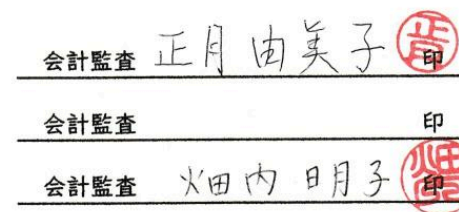 会計監査 正月由美子 印
会計監査 印
会計監査 畑内明子 印